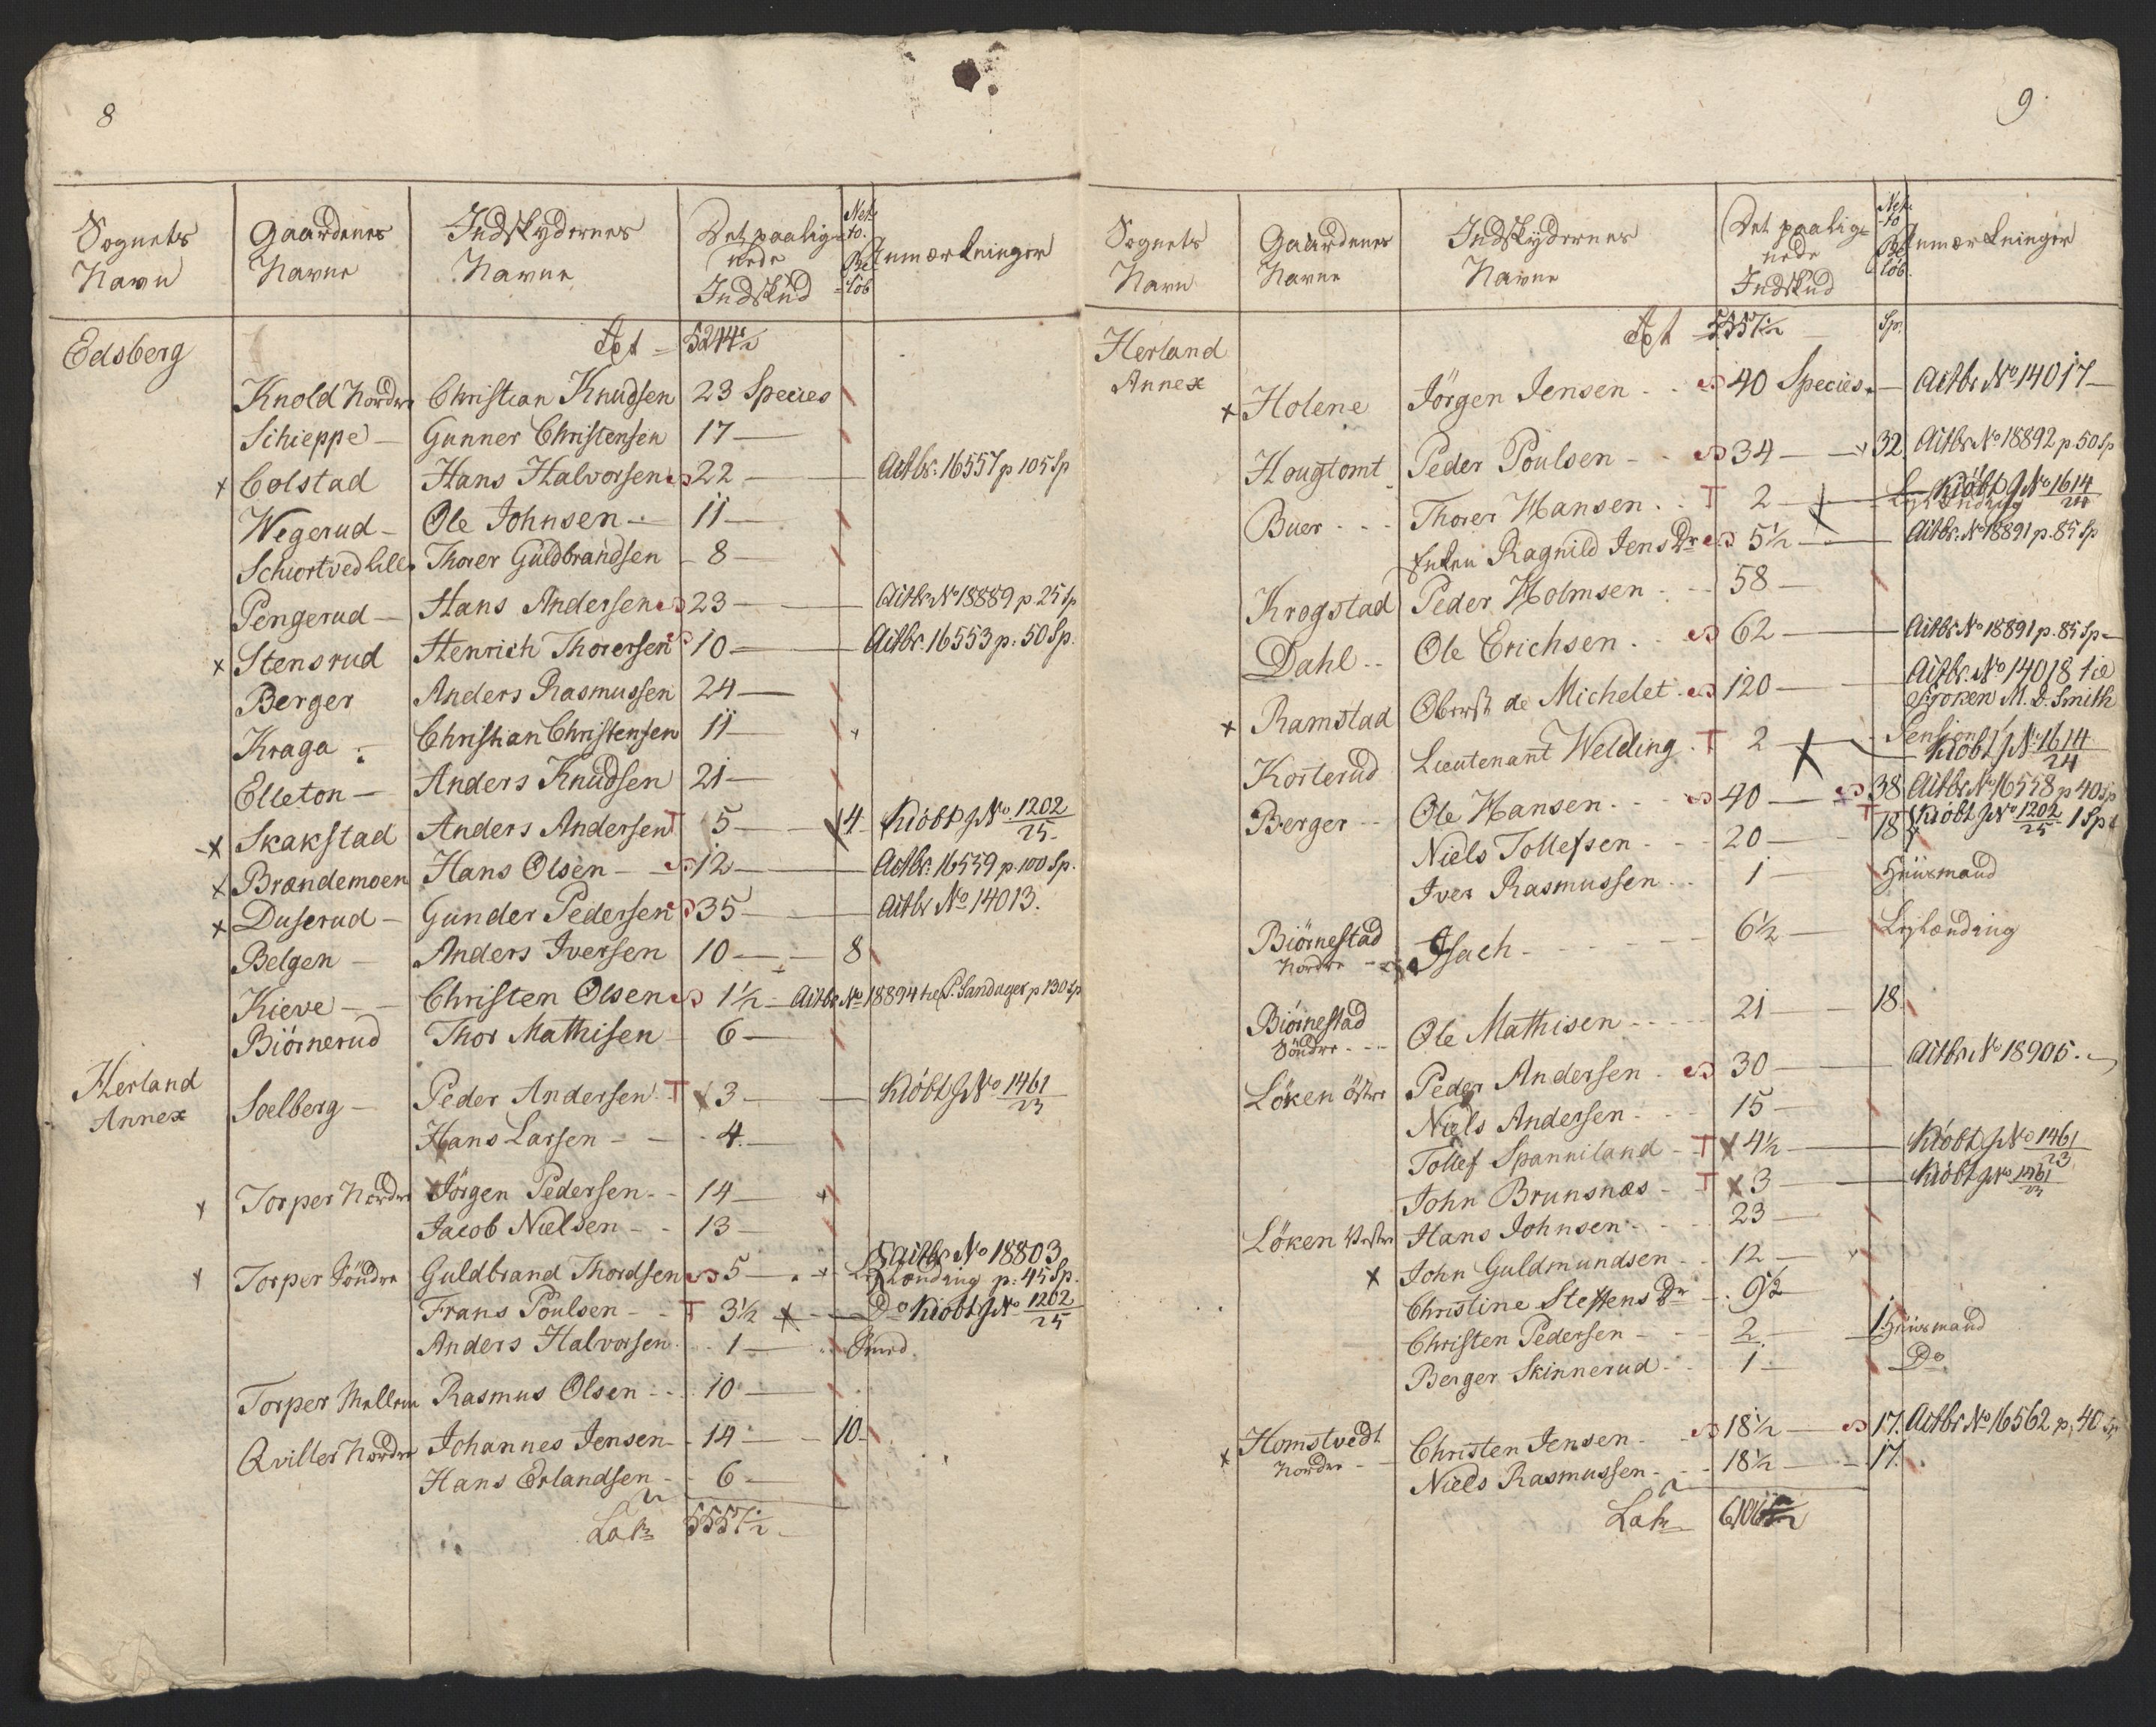 8
Sognets Navn | Gaardenes Navne | Indskydernes Navne | Det paalignede Indskud | Netto. Beløb | Anmærkninger
Edsberg
5244½
Knold Nordre | Christian Knudsen | 23 Species
Schieppe — | Gunner Christensen | 17 —
x Colstad | Hans Halvorsen | 22 — | Actbr. 16557 p 105 Sp
Wegerud — | Ole Johnsen — | 11 —
Schiortved lille | Thorer Guldbrandsen | 8 —
Pengerud — | Hans Andersen | 23 — | Actbr No 18889 p. 25 sp
x Stensrud | Henrich Thorersen | 10 — | Actbr. 16553 p. 50 Sp.
Berger | Anders Rasmussen | 24 —
Kraga | Christian Christensen | 11 —
Elleton — | Anders Knudsen | 21 —
x Skakstad | Anders Andersen T | 5 — | 4 | Kiöbt No 1202/25
x Brændemoen | Hans Olsen — | 12 — | Actbr. 16559 p. 100 Sp.
x Duserud — | Gunder Pedersen | 35 — | Actbr No 14013.
Belgen — | Anders Iversen | 10 — | 8
Kieve — | Christen Olsen | 1½ — Actbr No 18894 p 130 sp
Biörnerud | Thor Mathisen | 6 —
Herland Annex
Soelberg — | Peder Andersen T | x 3 — | Kiöbt No 1461/23
Hans Larsen — | 4 —
x Torper Nordre | Jörgen Pedersen | 14 —
Jacob Nielsen | 13 —
x Torper Söndre | Guldbrand Thordsen | 5 — | Actbr No 18803
Lejlænding p: 45 Sp.
Frans Poulsen — T | 3½ x — | Do Kiöbt No 1202/25
Anders Halvorsen | 1 —
Torper Mellem | Rasmus Olsen | 10 —
Qviller Nordre | Johannes Jensen | 14 — | 10
Hans Erlandsen | 6 —
Lat. 5557½
9
Sognets Navn | Gaardenes Navne | Indskydernes Navne | Det paalignede Indskud | Netto Beløb. | Anmærkninger
Herland Annex
5557½ | Sp.
x Holene | Jörgen Jensen | 40 Species — | Actbr No 14017 —
Hougtomt | Peder Poulsen | 34 — | 32 | Actbr No 18892 p. 50 Sp
Buer | Thorer Hansen T | 2 — | Lejlænding Kiöbt No 1614/24
Enken Ragnild Jens Dr | 5½ — | Actbr. No 18891 p. 85 Sp
Krogstad | Peder Holmsen | 58 —
Dahl | Ole Erichsen | 62 — | Actbr No 18891 p. 85 Sp —
x Ramstad | Oberst de Michelet | 120 — | Actbr. No 14018 til
Frøken M. D. Smith
Korterud | Lieutenant Welding T | 2 — | Pension Kiöbt No 1614/24
Berger | Ole Hansen | 40 — | 38 | Actbr No 16558 p 40 sp
Niels Tollefsen | 20 — | 18 | Kiöbt No 1202/25 1 Sp
Iver Rasmussen | 1 — | Huusmand
Biörnestad Nordre | Isach | 6½ — | Lejlænding
Biörnestad Söndre | Ole Mathisen | 21 — | 18
Löken Östre | Peder Andersen | 30 — | Actbr No 18905.
Niels Andersen | 15 —
Tollef Spanniland T | x 4½ — | Kiöbt No 1461/23
John Brunsnæs T | x 3 — | Kiöbt No 1461/23
Löken Vestre | Hans Johnsen | 23 —
x John Guldmundsen | 12 —
Christine Steffens Dr | 9½
Christen Pedersen | 2. — | 1. Huusmand
Berger Skinnerud | 1 — | Do
x Homstvedt Nordre | Christen Jensen | 18½ — | 17. | Actbr No 16562 p. 40 Sp
Niels Rasmussen | 18½ — | 17.
Lat.